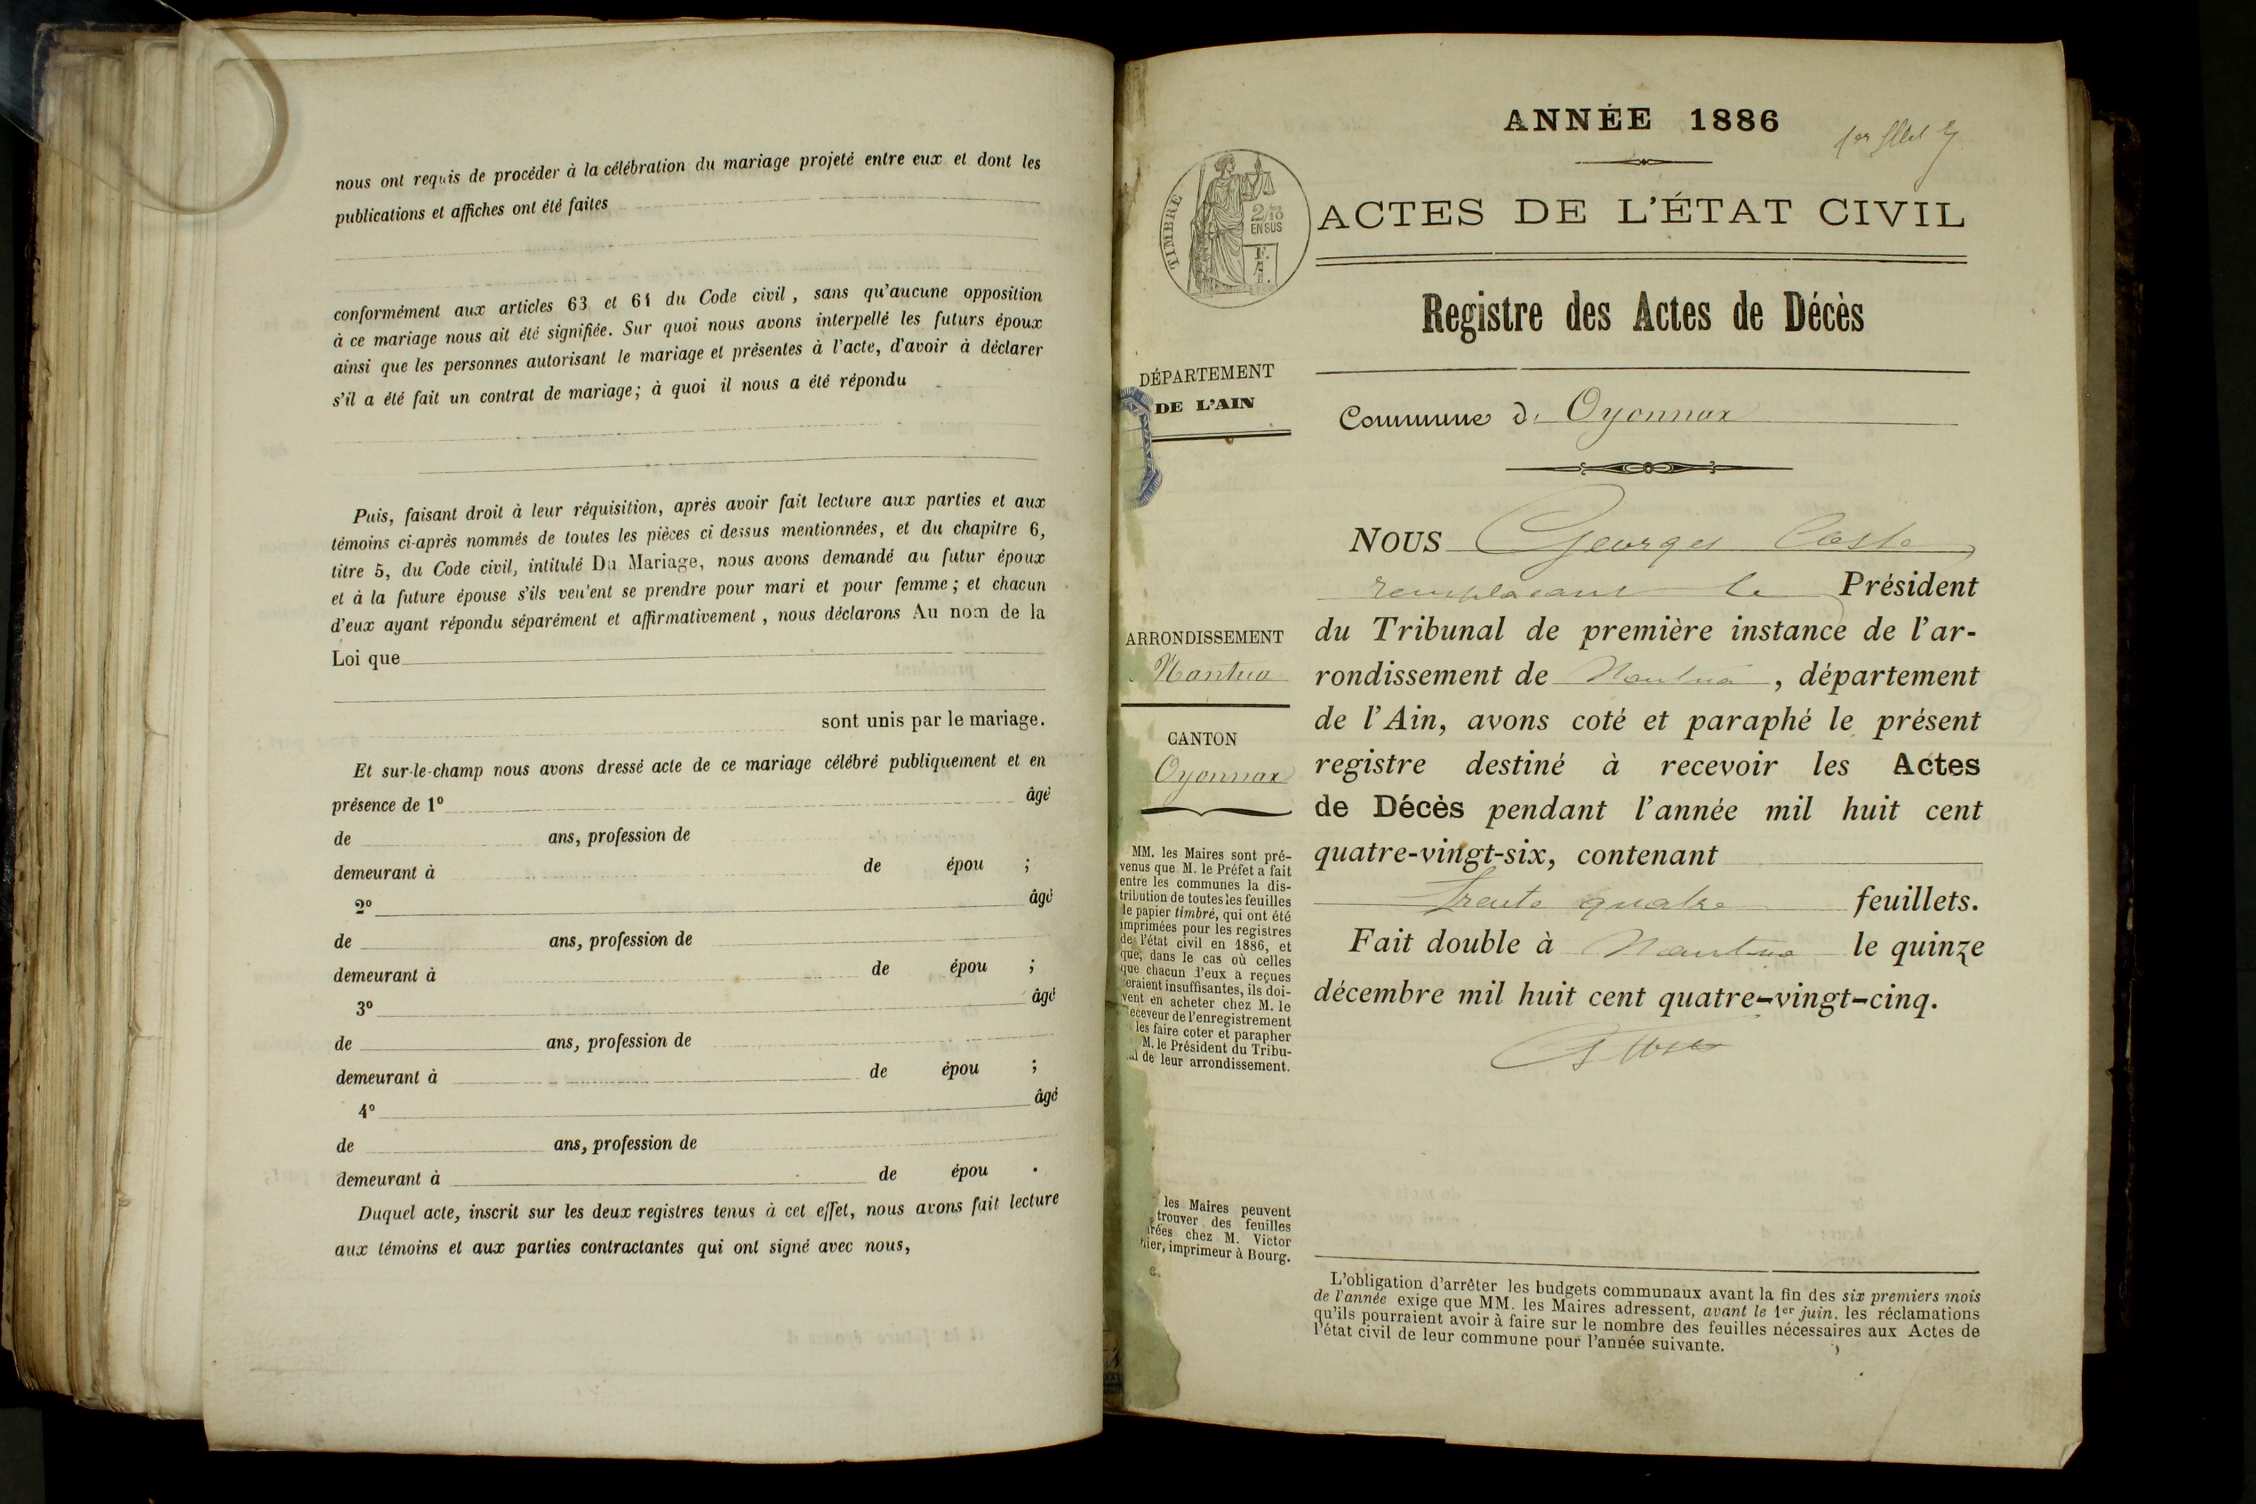 nous ont requis de procéder à la célébration du mariage projeté entre eux et dont les
publications et affiches ont été faites
conformément aux articles 63 et 64 du Code civil, sans qu'aucune opposition
à ce mariage nous ait été signifiée. Sur quoi nous avons interpellé les futurs époux
ainsi que les personnes autorisant le mariage et présentes à l'acte, d'avoir à déclarer
s'il a été fait un contrat de mariage; à quoi il nous a été répondu
Puis, faisant droit à leur réquisition, après avoir fait lecture aux parties et aux
témoins ci-après nommés de toutes les pièces ci dessus mentionnées, et du chapitre 6,
titre 5, du Code civil, intitulé Du Mariage, nous avons demandé au futur époux
et à la future épouse s'ils veu'ent se prendre pour mari et pour femme; et chacun
d'eux ayant répondu séparément et affirmativement, nous déclarons Au nom de la
Loi que
sont unis par le mariage.
Et sur-le-champ nous avons dressé acte de ce mariage célébré publiquement et en
présence de 1º âgé
de ans, profession de
demeurant à de épou ;
2º âgé
de ans, profession de
demeurant à de épou ;
3º âgé
de ans, profession de
demeurant à de épou ;
4º âgé
de ans, profession de
demeurant à de épou .
Duquel acte, inscrit sur les deux registres tenus à cet effet, nous avons fait lecture
aux témoins et aux parties contractantes qui ont signé avec nous,
ANNÉE 1886
1er
TIMBRE
2/10
EN SUS
ACTES DE L'ÉTAT CIVIL
Registre des Actes de Décès
DÉPARTEMENT
DE L'AIN
Commune d Oyonnax
NOUS Georges Coste
remplaçant le Président
du Tribunal de première instance de l'ar-
rondissement de Nantua, département
de l'Ain, avons coté et paraphé le présent
registre destiné à recevoir les Actes
de Décès pendant l'année mil huit cent
quatre-vingt-six, contenant
Trente quatre feuillets.
Fait double à Nantua le quinze
décembre mil huit cent quatre-vingt-cinq.
ARRONDISSEMENT
Nantua
CANTON
Oyonnax
MM. les Maires sont pré-
venus que M. le Préfet a fait
entre les communes la dis-
tribution de toutes les feuilles
de papier timbré, qui ont été
imprimées pour les registres
de l'état civil en 1886, et
que, dans le cas où celles
que chacun d'eux a reçues
seraient insuffisantes, ils doi-
vent en acheter chez M. le
Receveur de l'enregistrement
les faire coter et parapher
M. le Président du Tribu-
nal de leur arrondissement.
les Maires peuvent
trouver des feuilles
chez M. Victor
imprimeur à Bourg.
L'obligation d'arrêter les budgets communaux avant la fin des six premiers mois
de l'année exige que MM. les Maires adressent, avant le 1er juin, les réclamations
qu'ils pourraient avoir à faire sur le nombre des feuilles nécessaires aux Actes de
l'état civil de leur commune pour l'année suivante.